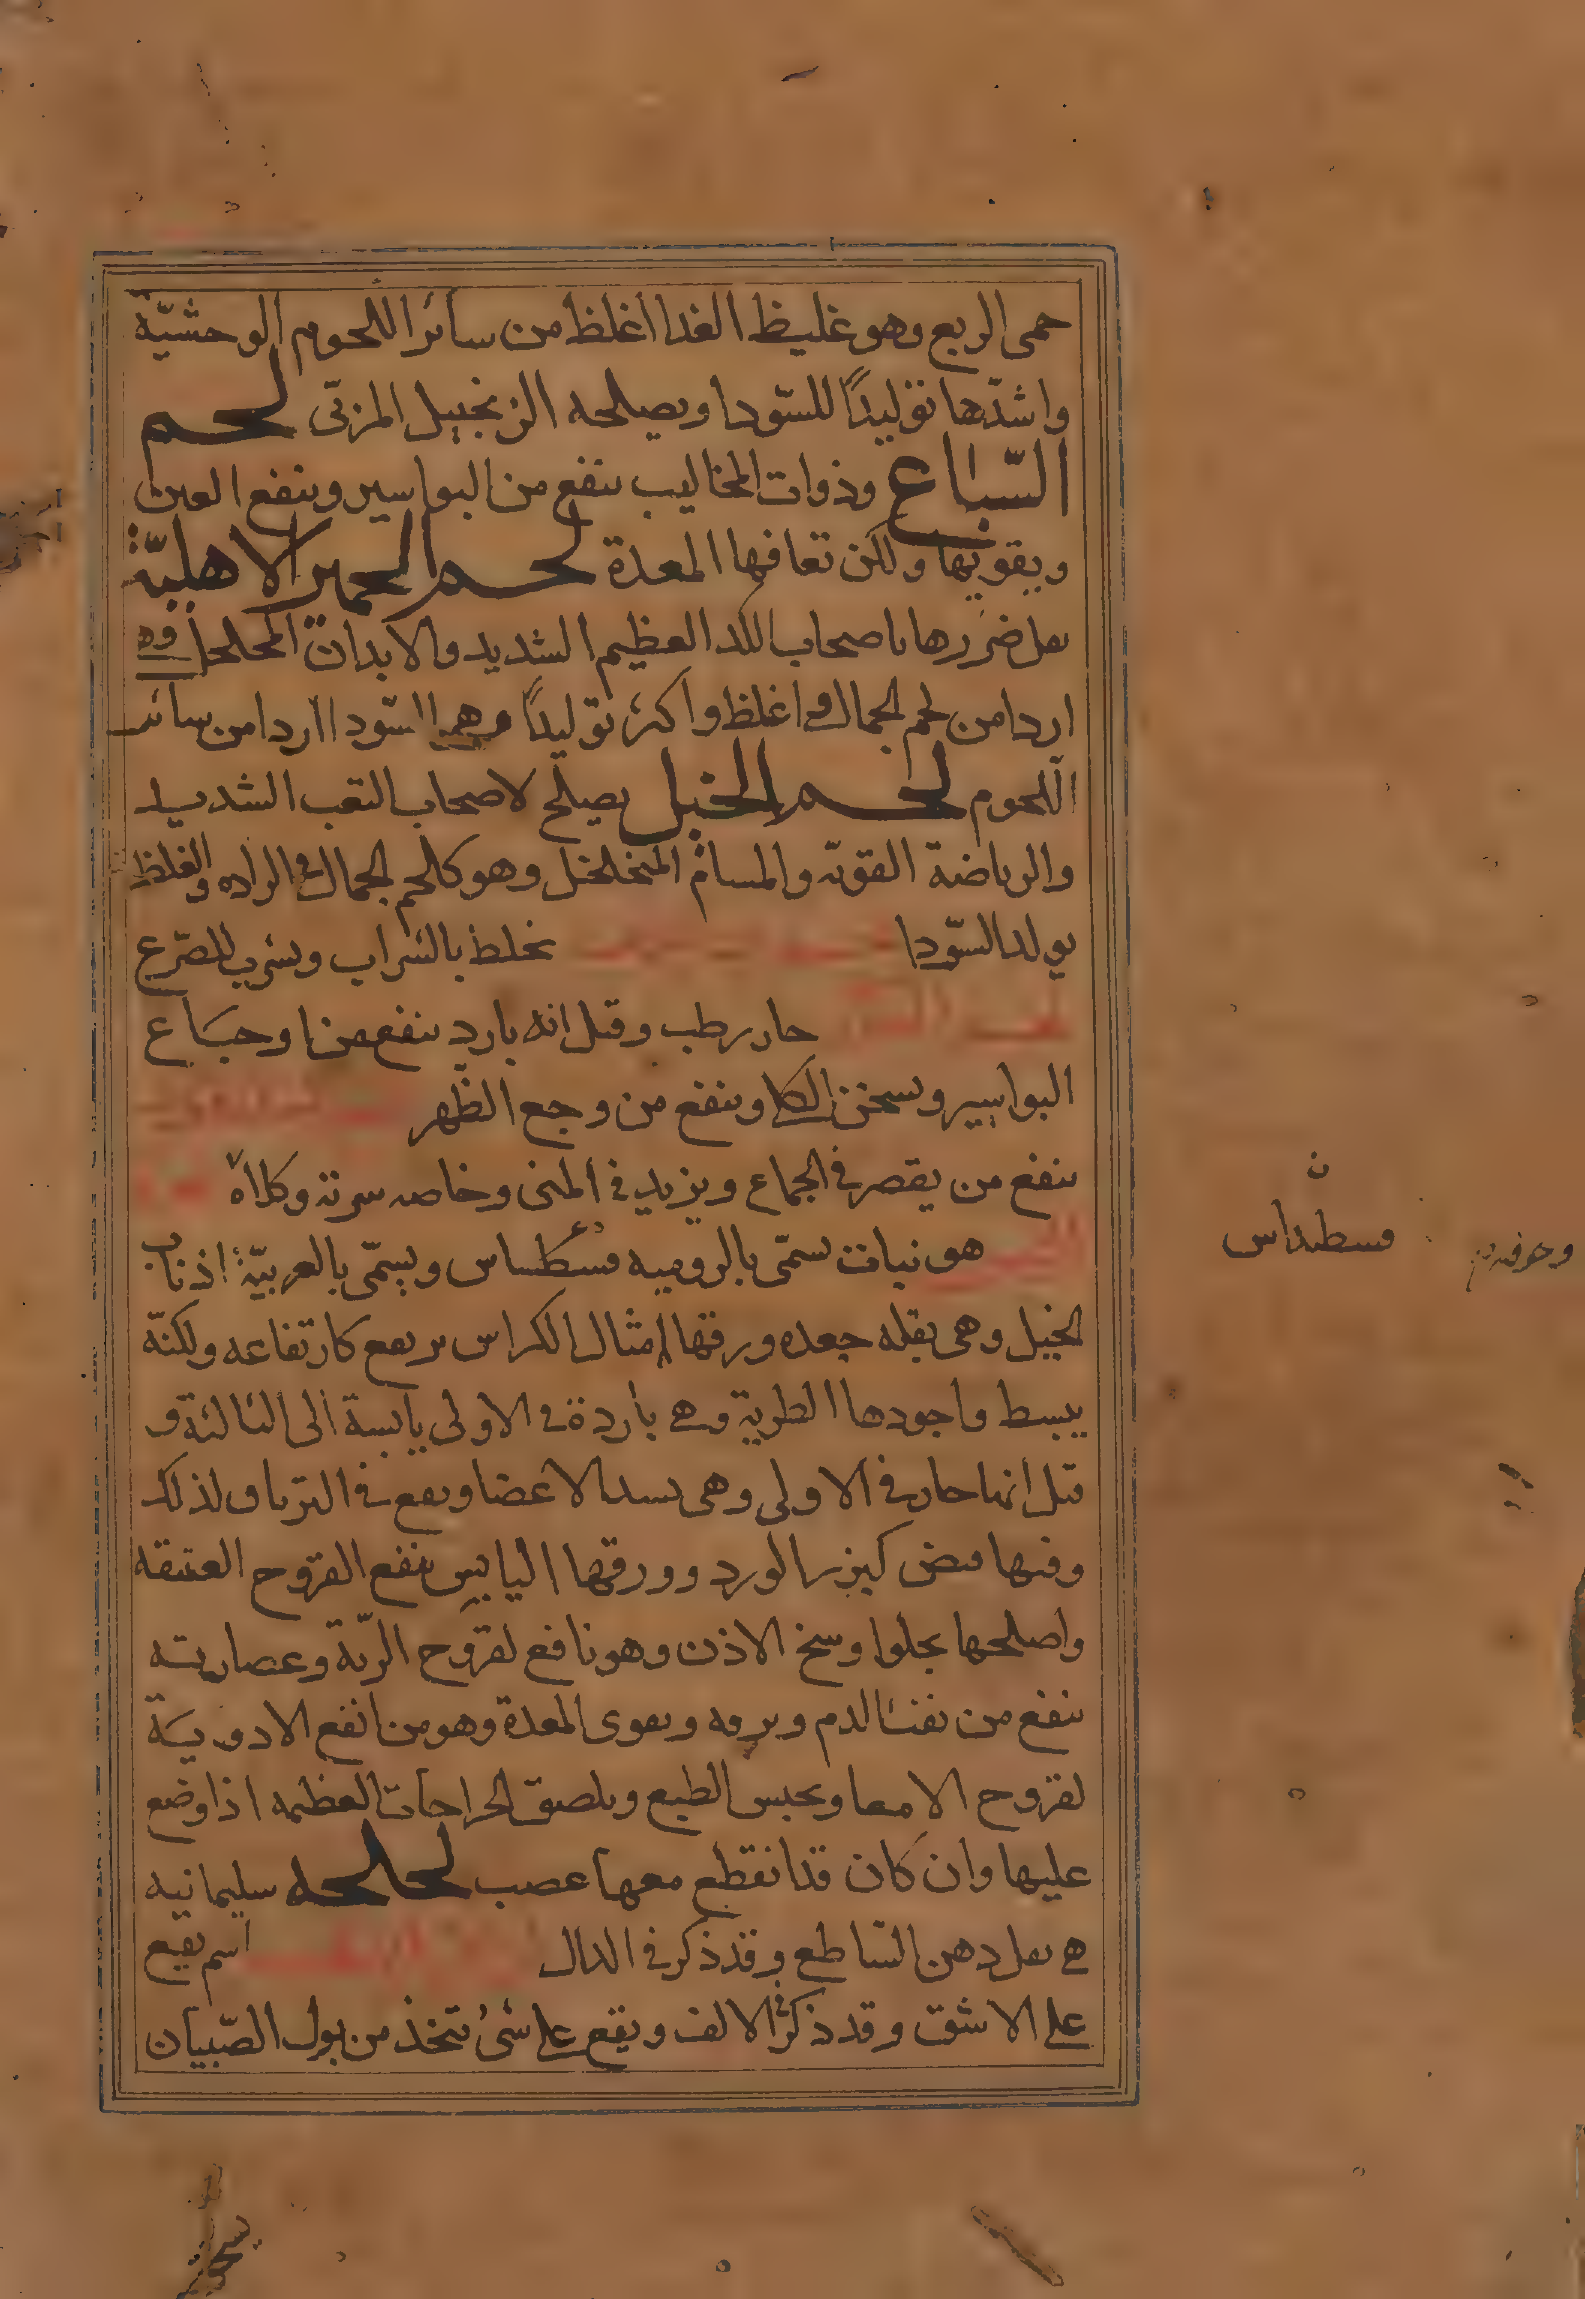 حمى الربع وهو غليظ الغدا اغلظ من سائر اللحوم الوحشيّة
واشدّها توليدًا للسّودا ويصلحه الزنجبيل المربّى لحم
السّباع وذوات المخاليب ينفع من البواسير وينفع العين
ويقويها ولكن تعافها المعدة لحم الحمير الاهليّة
يقل ضررها باصحاب الكد العظيم الشديد والابدان المخلخل وهى
اردا من لحم الجمال واغلظ واكثر توليدًا وهى السّودا اردا من سائر
اللحوم لحم الخيل يصلح لاصحاب التعب الشديد
والرياضة القوية والمسام المتخلخل وهو كلحم الجمال فى الرداه والغلظ
يولد السّودا يخلط بالشراب ويشرب للصّرع
حار رطب وقيل انه بارد ينفع من اوجاع
البواسير ويسخن الكلا وينفع من وجع الظهر
ينفع من يقصر فى الجماع ويزيد فى المنى وخاصه سرته وكلاه
هو نبات يسمّى بالروميه ويسمّى بالعربيّة اذناب
الخيل وهى بقله جعده ورقها امثال الكراس يرتفع كارتفاعه ولكنّه
يبسط واجودها الطرية وهى باردة فى الاولى يابسة الى الثالثة و
قيل انها حار فى الاولى وهى يسد الاعضا ويقع فى الترياق لذلك
وفيها قبض كبزر الورد وورقها اليابس ينفع القروح العتيقه
واصلحها يجلوا وسخ الاذن وهو نافع لقروح الرية وعصارته
ينفع من نفث الدم ويقوى المعدة وهو من انفع الادوية
لقروح الامعا ويحبس الطبع ويلصق الجراحات العظيمه اذا وضع
عليها وان كان قد انقطع معها عصب لحلحه سليمانيه
هى دهن الساطع وقد ذكر فى الدال اسم يقع
على الاشق وقد ذكر فى الالف ويقع على شئ يتخذ من بول الصّبيان
ن